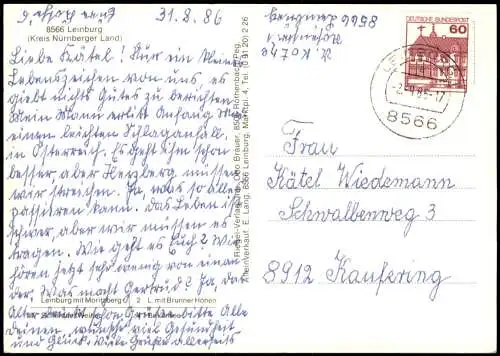 31.8.86
8566 Leinburg
(Kreis Nürnberger Land)
Liebe Kätel! Nur ein kleines
Lebenszeichen von uns, es
gibt nichts Gutes zu berichten
Mein Mann erlitt Anfang Mai
einen leichten Schlaganfall
in Österreich. Es geht ihm schon
besser, aber Herzberg müssen
wir streichen. Ja, was so alles
passieren kann. Das Leben ist
schwer, aber wir müssen es
tragen. Wie geht es Euch 2 Wir
hören jetzt sehr wenig von einan
der. Was macht Gertrud? Ja, das
Alter
Leinburg mit Moritzberg 2 L. mit Brunner Höhen
Gute bitte Alle
Deinen, wünsche viel Gesundheit
und Glück. Viele Grüße allerseits
Eure
8566
DEUTSCHE BUNDESPOST
60
8566
Frau
Kätel Wiedemann
Schwalbenweg 3
8912 Kaufering
Otto Bräuer, 8501
Alleinverkauf: E. Lang, 8566 Leinburg, Marktpl. 4, Tel. (0 91 20) 2 26